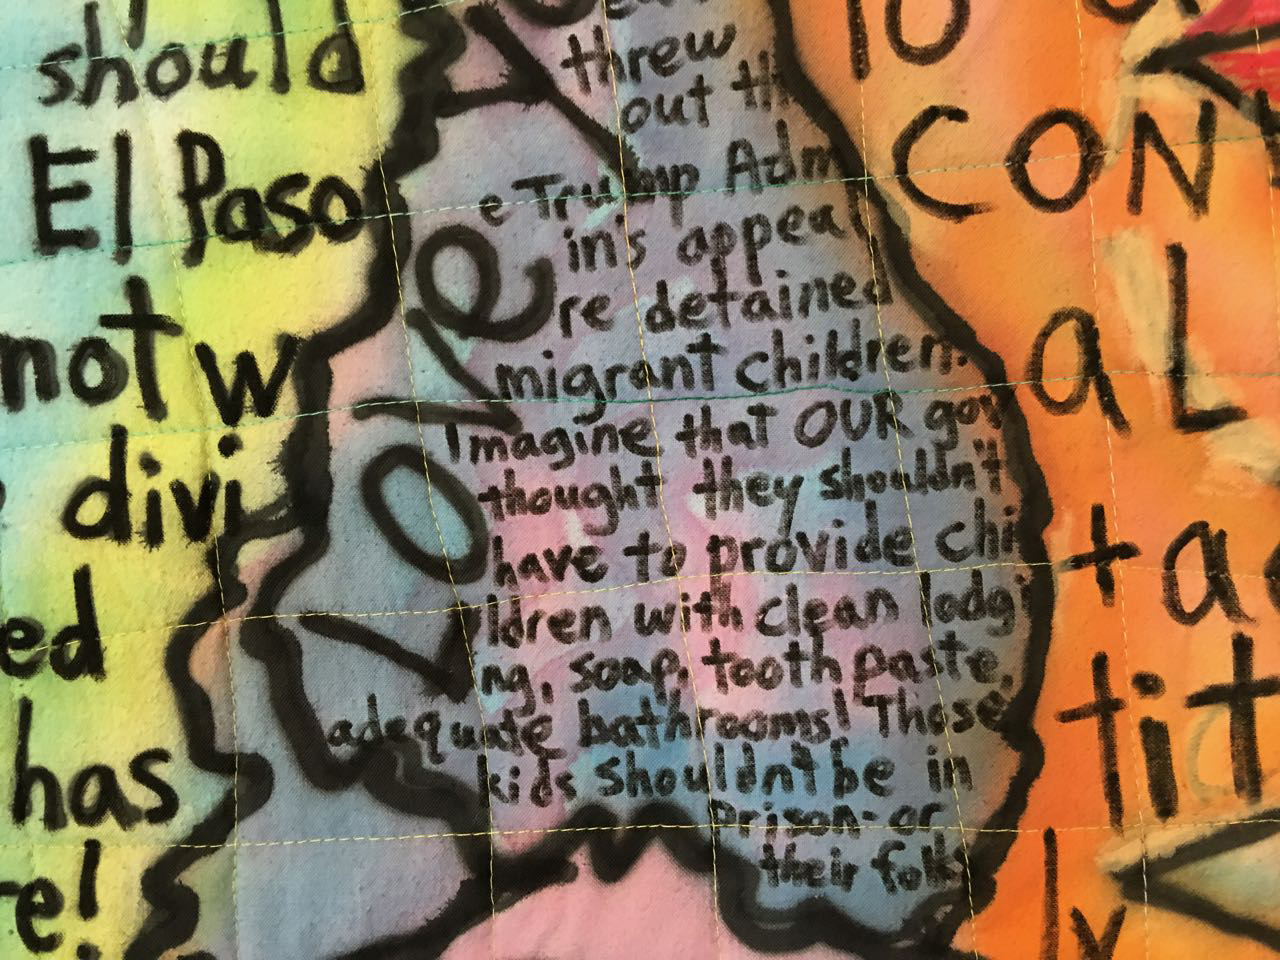 should
El Paso
not w
divi
ed
has
re!
Love
threw
out th
e Trump Adm
in's appea
re detained
migrant children.
Imagine that OUR gov
thought they shouldn't
have to provide chi
ldren with clean lodgi
ng, soap, tooth paste,
adequate bathrooms! Those
kids shouldn't be in
prison-or
their folks
To
CON
aL
tac
tit
ly